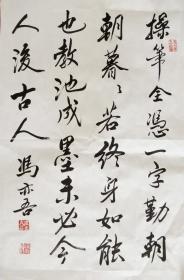 操筆全憑一字勤朝
朝暮〻若終身如能
也教池成墨未必今
人後古人 馮亦吾